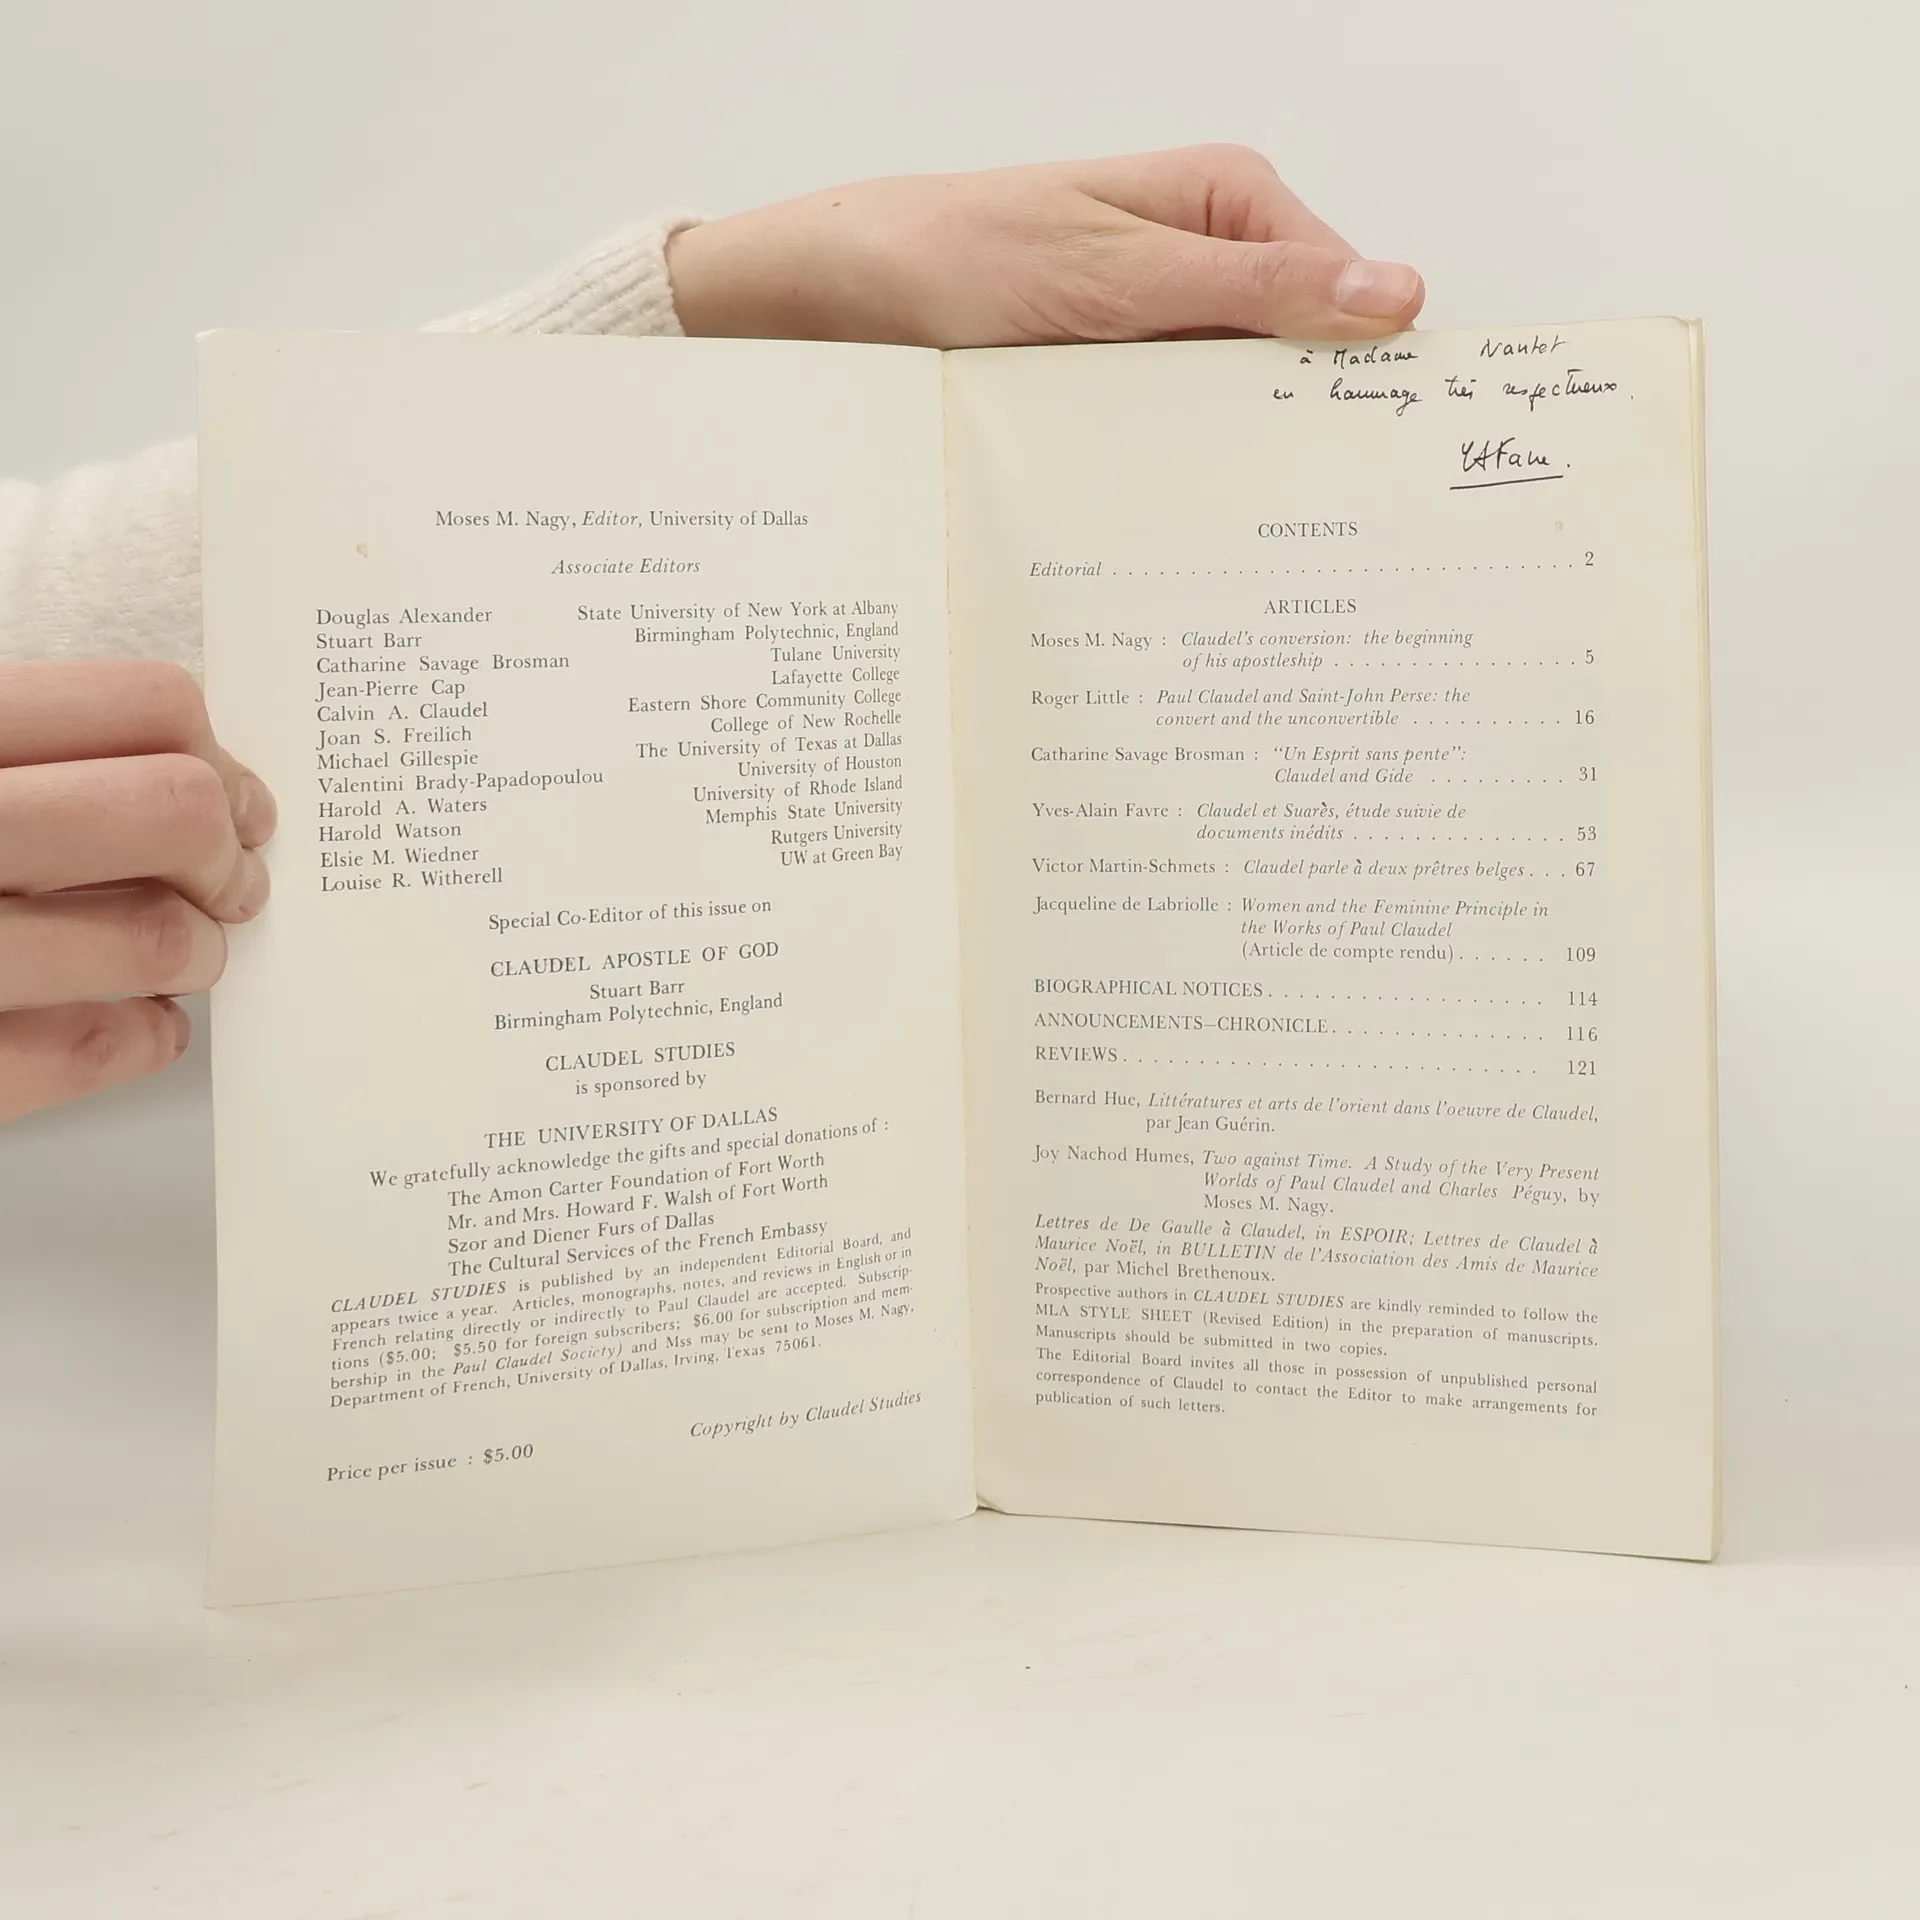 Moses M. Nagy, Editor, University of Dallas
Associate Editors
Douglas Alexander State University of New York at Albany
Stuart Barr Birmingham Polytechnic, England
Catharine Savage Brosman Tulane University
Jean-Pierre Cap Lafayette College
Calvin A. Claudel Eastern Shore Community College
Joan S. Freilich College of New Rochelle
Michael Gillespie The University of Texas at Dallas
Valentini Brady-Papadopoulou University of Houston
Harold A. Waters University of Rhode Island
Harold Watson Memphis State University
Elsie M. Wiedner Rutgers University
Louise R. Witherell UW at Green Bay
Special Co-Editor of this issue on
CLAUDEL APOSTLE OF GOD
Stuart Barr
Birmingham Polytechnic, England
CLAUDEL STUDIES
is sponsored by
THE UNIVERSITY OF DALLAS
We gratefully acknowledge the gifts and special donations of :
The Amon Carter Foundation of Fort Worth
Mr. and Mrs. Howard F. Walsh of Fort Worth
Szor and Diener Furs of Dallas
The Cultural Services of the French Embassy
CLAUDEL STUDIES is published by an independent Editorial Board, and
appears twice a year. Articles, monographs, notes, and reviews in English or in
French relating directly or indirectly to Paul Claudel are accepted. Subscrip-
tions ($5.00; $5.50 for foreign subscribers; $6.00 for subscription and mem-
bership in the Paul Claudel Society) and Mss may be sent to Moses M. Nagy,
Department of French, University of Dallas, Irving, Texas 75061.
Copyright by Claudel Studies
Price per issue : $5.00
à Madame Nantet
en hommage très respectueux.
YAFavre.
CONTENTS
Editorial . . . . . . . . . . . . . . . . . . . . . . . . . . . . . . 2
ARTICLES
Moses M. Nagy : Claudel's conversion: the beginning
of his apostleship . . . . . . . . . . . . . . . . 5
Roger Little : Paul Claudel and Saint-John Perse: the
convert and the unconvertible . . . . . . . . . . 16
Catharine Savage Brosman : "Un Esprit sans pente":
Claudel and Gide . . . . . . . . . 31
Yves-Alain Favre : Claudel et Suarès, étude suivie de
documents inédits . . . . . . . . . . . . . . 53
Victor Martin-Schmets : Claudel parle à deux prêtres belges . . . 67
Jacqueline de Labriolle : Women and the Feminine Principle in
the Works of Paul Claudel
(Article de compte rendu) . . . . . . 109
BIOGRAPHICAL NOTICES . . . . . . . . . . . . . . . . . . 114
ANNOUNCEMENTS—CHRONICLE . . . . . . . . . . . . . . 116
REVIEWS . . . . . . . . . . . . . . . . . . . . . . . . . . . 121
Bernard Hue, Littératures et arts de l'orient dans l'oeuvre de Claudel,
par Jean Guérin.
Joy Nachod Humes, Two against Time. A Study of the Very Present
Worlds of Paul Claudel and Charles Péguy, by
Moses M. Nagy.
Lettres de De Gaulle à Claudel, in ESPOIR; Lettres de Claudel à
Maurice Noël, in BULLETIN de l'Association des Amis de Maurice
Noël, par Michel Brethenoux.
Prospective authors in CLAUDEL STUDIES are kindly reminded to follow the
MLA STYLE SHEET (Revised Edition) in the preparation of manuscripts.
Manuscripts should be submitted in two copies.
The Editorial Board invites all those in possession of unpublished personal
correspondence of Claudel to contact the Editor to make arrangements for
publication of such letters.